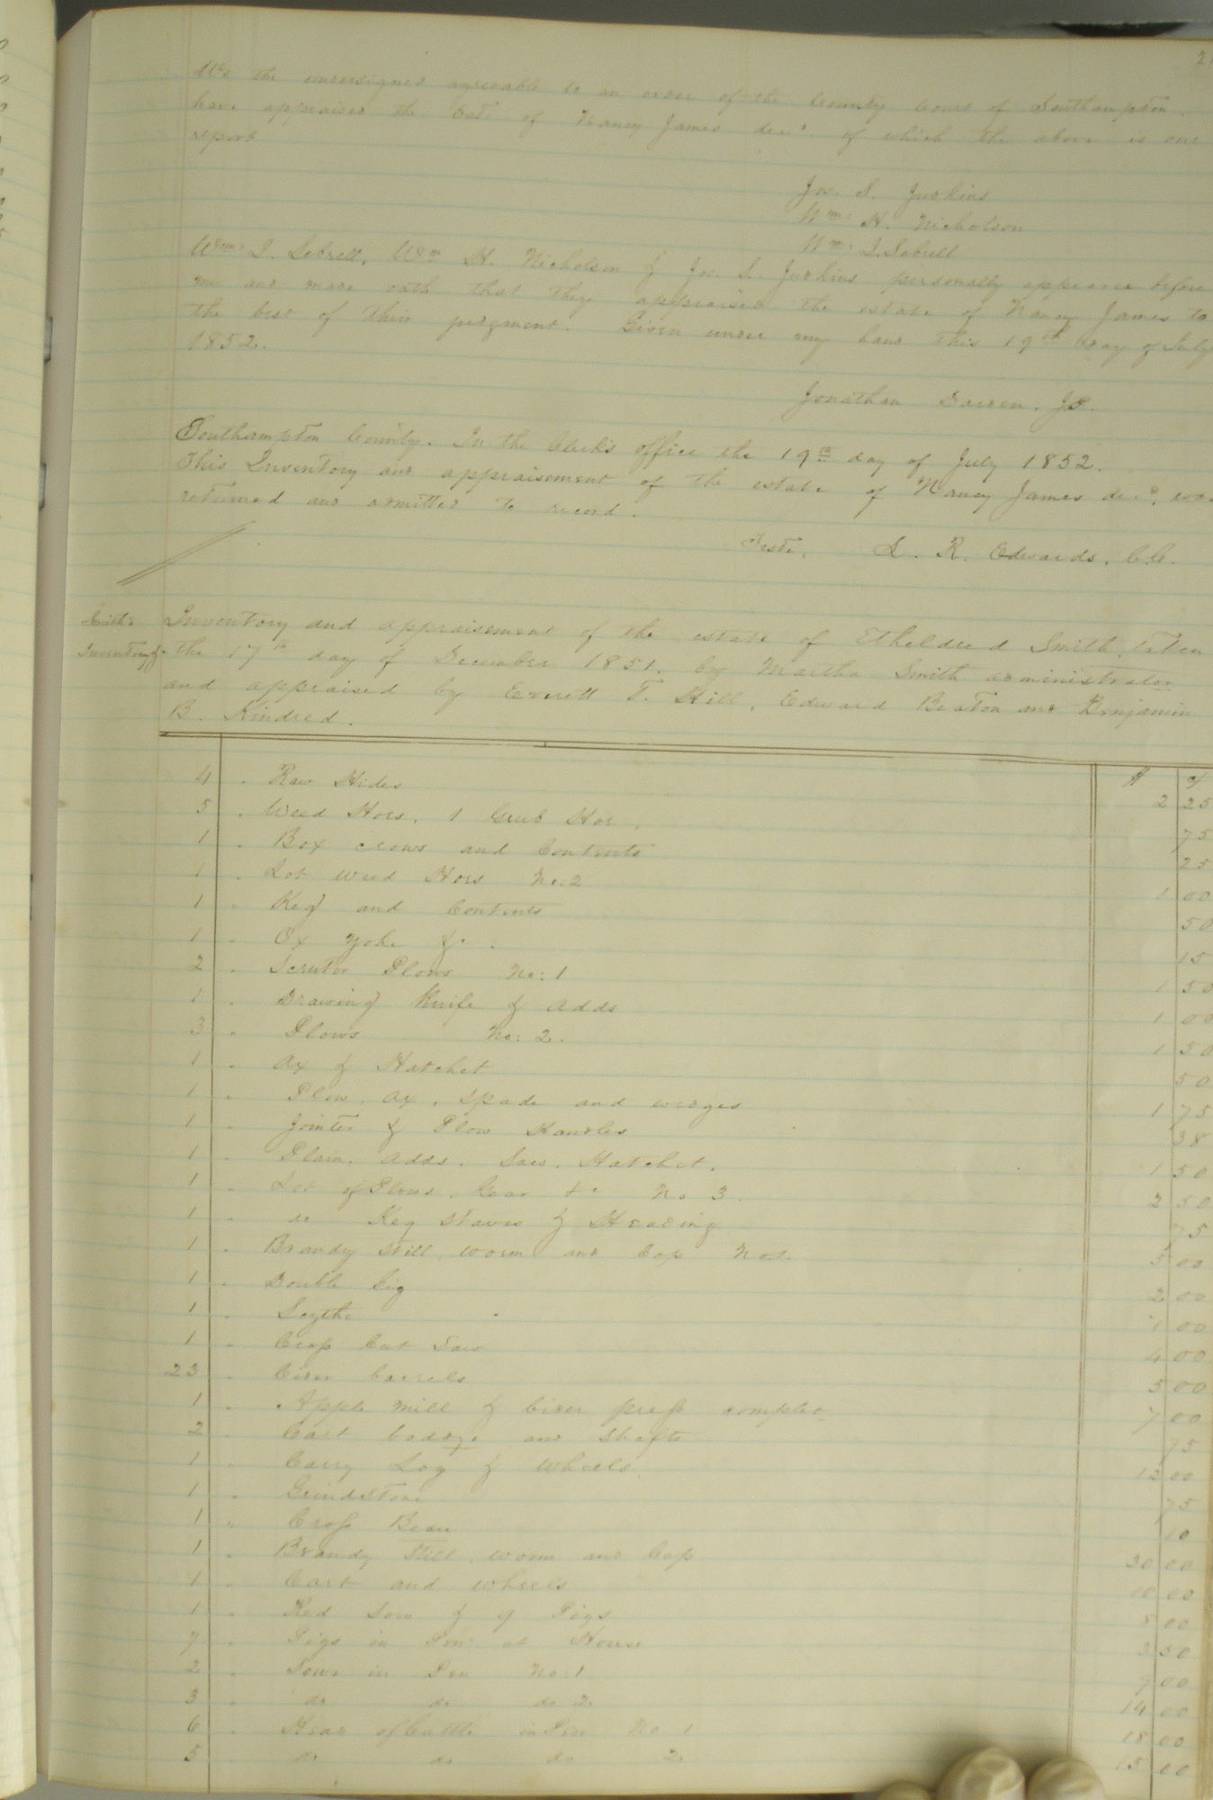 We the undersigned agreeable to an order of the County Court of Southampton
have appraised the Est. of Nancy James decd. of which the above is our
report
Jos. S. Judkins
Wm. H. Nicholson
Wm. J. Sebrell
Wm. J. Sebrell, Wm H. Nicholson & Jos. S. Judkins personally appeared before
me and made oath that they appraised the estate of Nancy James to
the best of their judgment. Given under my hand this 19th day of July
1852.
Jonathan Darden. JP.
Southampton County. In the Clerk's office the 19th day of July 1852.
This Inventory and appraisement of the estate of Nancy James decd. was
returned and admitted to record.
Teste, L. R. Edwards. C.C.
Smith's
Inventory &c
Inventory and appraisement of the estate of Etheldred Smith, taken
the 17th day of December 1851. by Martha Smith administrator
and appraised by Everett T. Hill, Edward Beaton and Benjamin
B. Kindred.
$ cts
4 Raw Hides 2 25
5 Weed Hoes, 1 Grub Hoe 75
1 Box and Contents 25
1 Lot Weed Hoes No. 2 1 00
1 Keg and Contents 50
1 Ox Yoke &c. 15
2 Plows No: 1 1 50
1 Drawing Knife & Adds 1 00
3 Plows No: 2. 1 50
1 Ax & Hatchet 50
1 Plow, Ax, Spade and wedges 1 75
1 Jointer & Plow Handles 38
1 Plain, Adds, Saw, Hatchet. 1 50
1 Lot of Plows, Gear &c No 3 2 50
1 do Keg Staves & Heading 75
1 Brandy Still, worm and Cap No 1 5 00
1 Double Gig 2 00
1 Scythe 1 00
1 Cross Cut Saw 4 00
23 Cider barrels 5 00
1 Apple Mill & Cider press complete 7 00
2 Cart bodys and Shafts 75
1 Carry Log & Wheels 12 00
1 Grindstone 75
1 Cross Beam 10
1 Brandy Still, worm and Cap 30 00
1 Cart and wheels 10 00
1 Red Sow & 9 Pigs 8 00
7 Pigs in Pen at House 3 50
2 Sows in Pen No: 1 9 00
3 do do do 2 14 00
6 Head of Cattle in Pen No 1 18 00
5 do do do 2 15 00